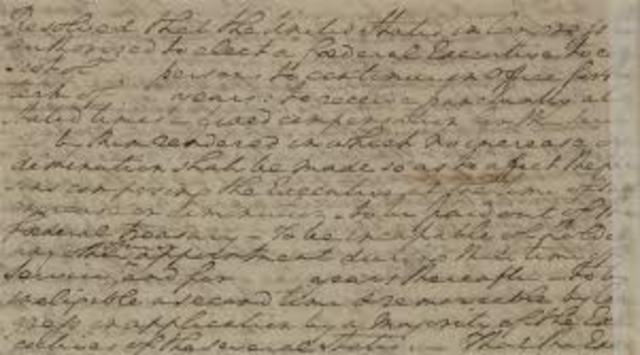 Resolved that the United States in Congress
authorized to elect a federal Executive to
persons to continue in office for
term of years; to receive punctually at
stated times a fixed compensation
to be in rendered in which no increase
diminution shall be made so as to affect the
composing the Executive at the time of
increase or diminution, to be paid out of the
federal treasury — to be incapable of hold
any other appointment during their time of
service, and for years thereafter — to be
ineligible a second time & removeable by
on application by a majority of the Ex
ecutives of the several States — That the Ex